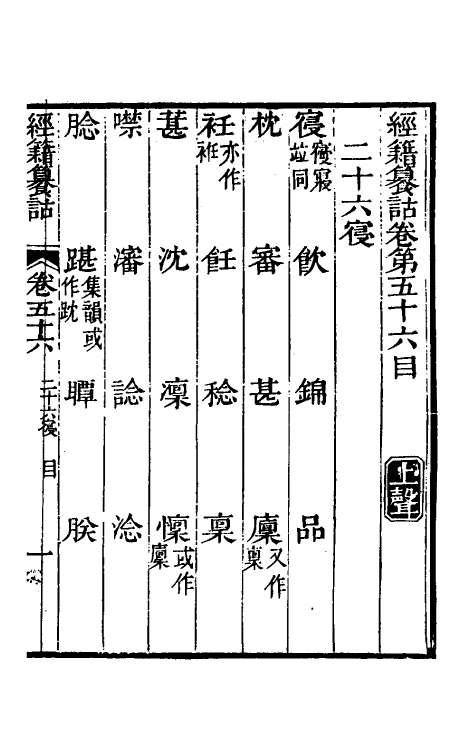 經籍籑詁卷第五十六目 上聲
二十六寑
寑寢寢並同 飲 錦 品
枕 審 甚 廩又作稟
衽亦作袵 飪 稔 稟
葚 沈 凜 懍或作廩
噤 瀋 諗 淰
腍 踸集韻或作㽎 瞫 朕
經籍籑詁 卷五十六 二十六寑 目 一